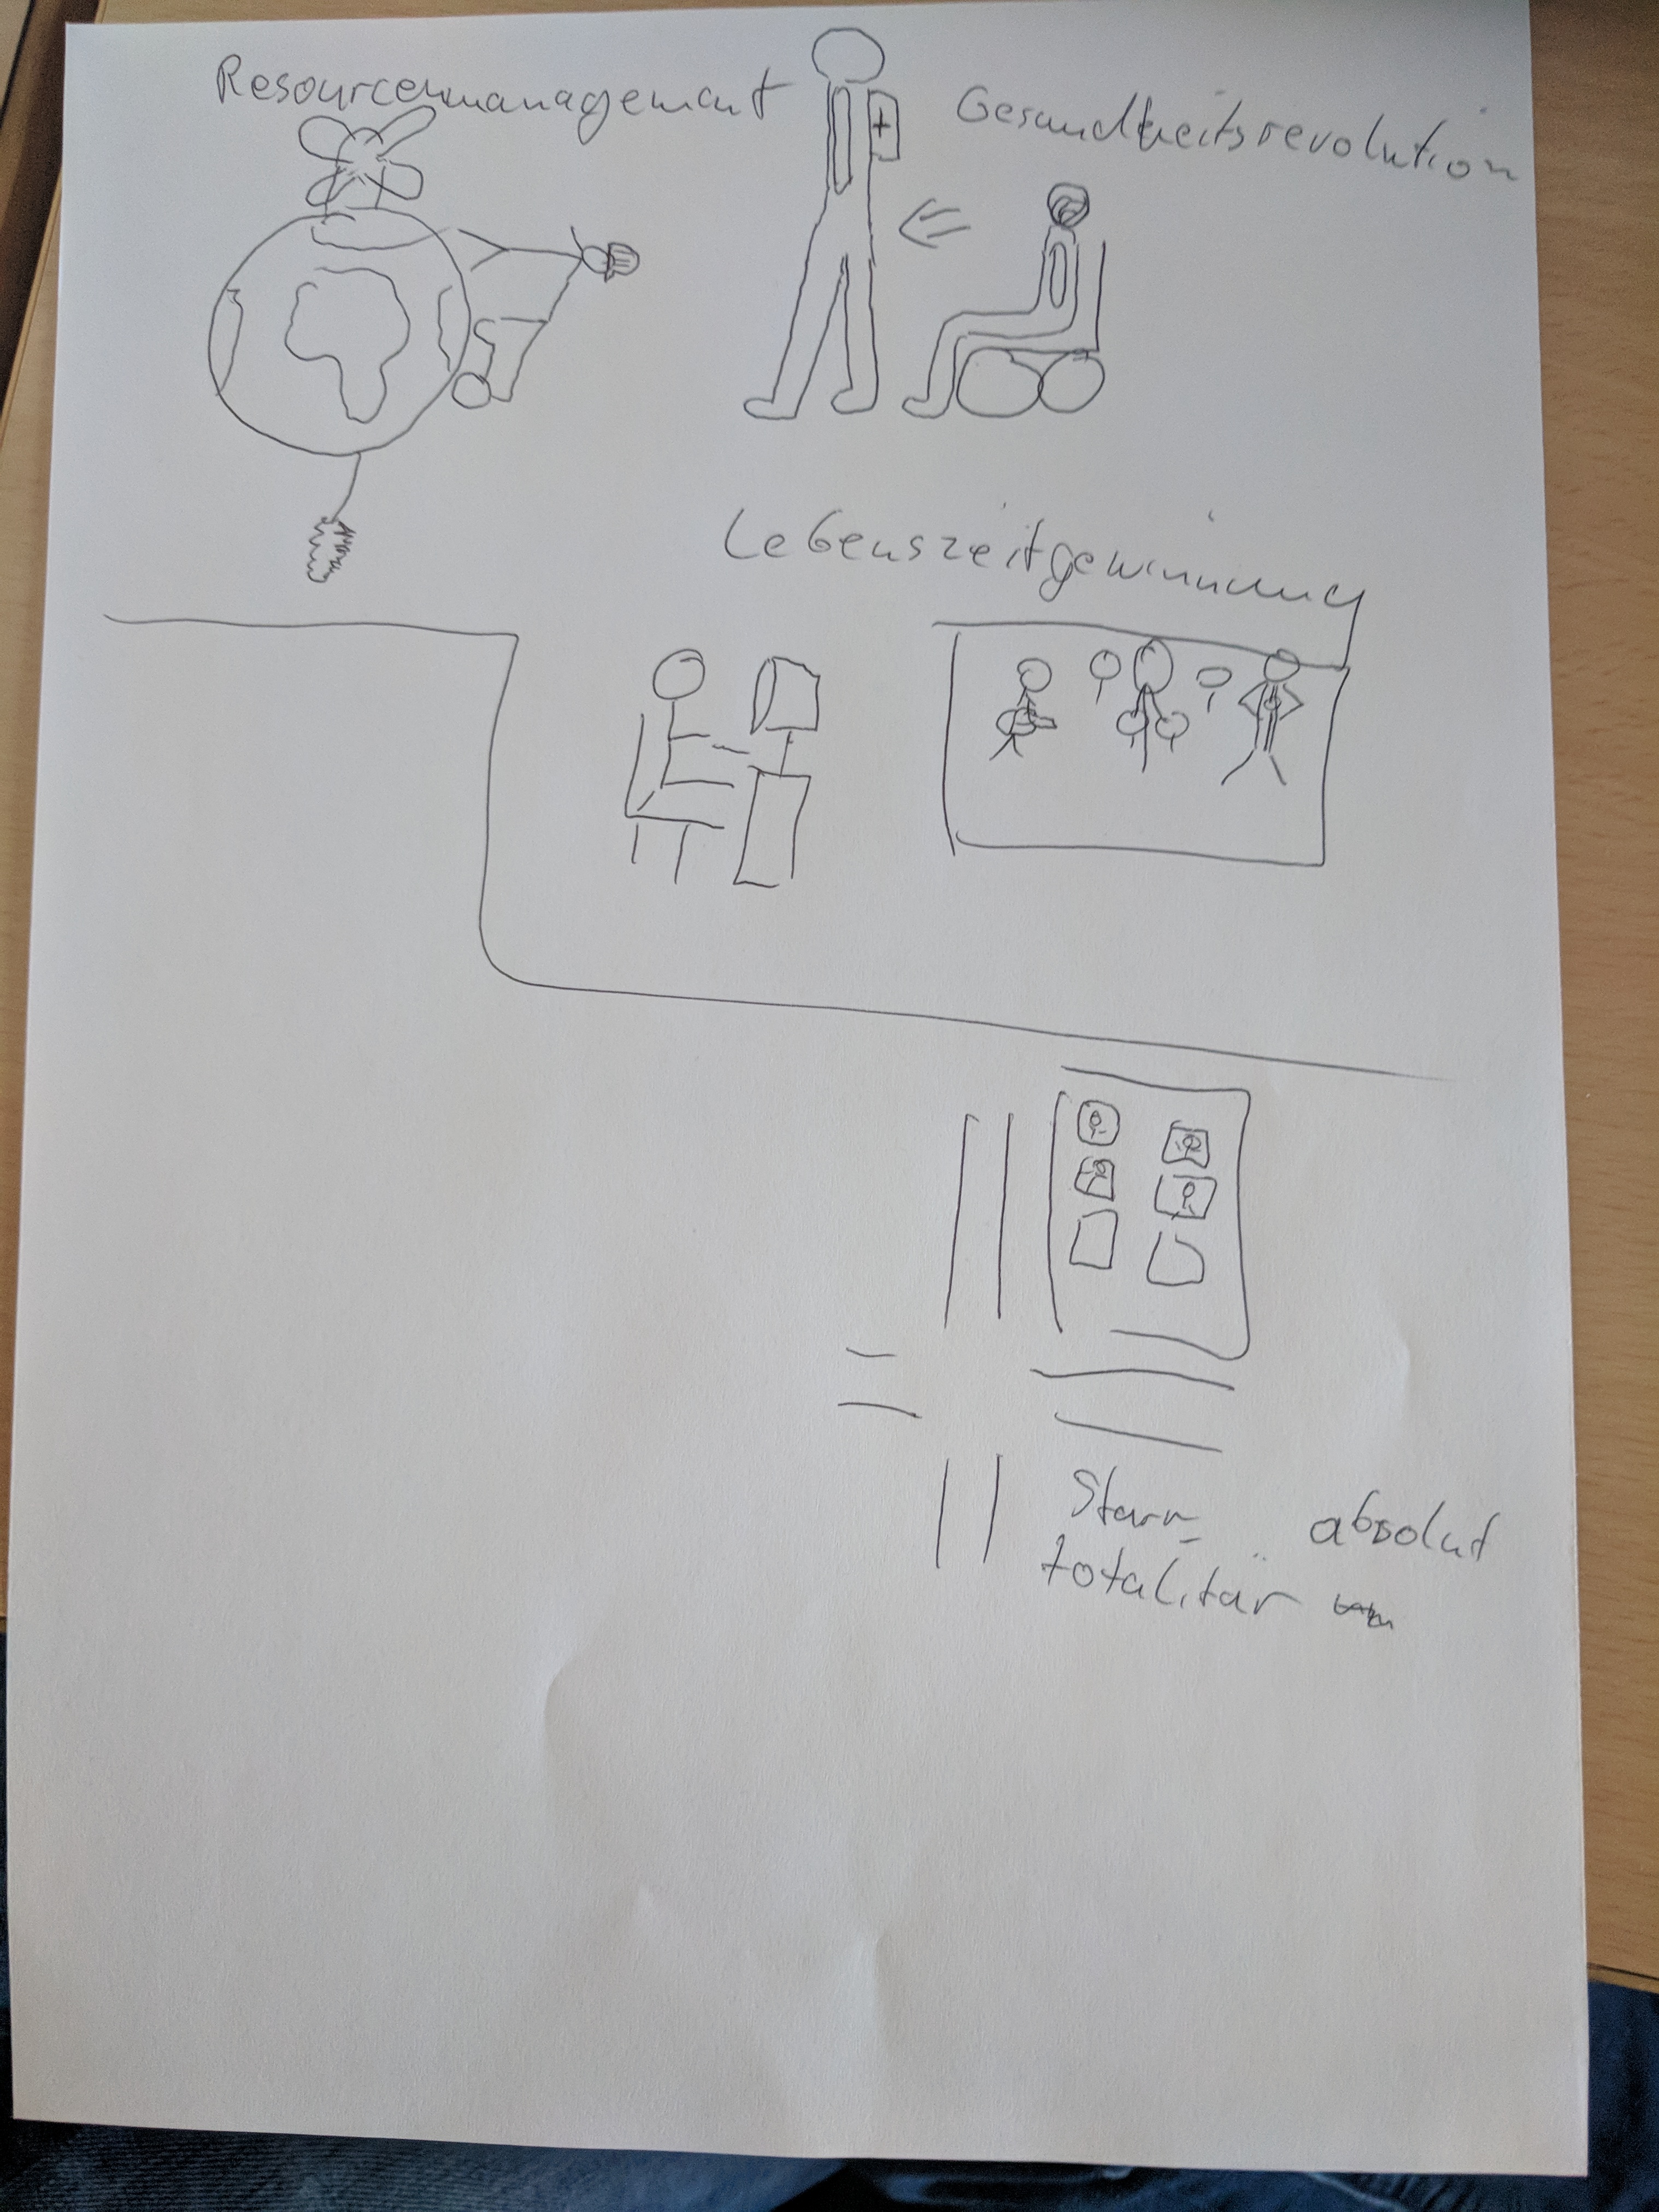 Resourcenmanagement
Gesundheitsrevolution
Lebenszeitgewinnung
Starr absolut
totalitär